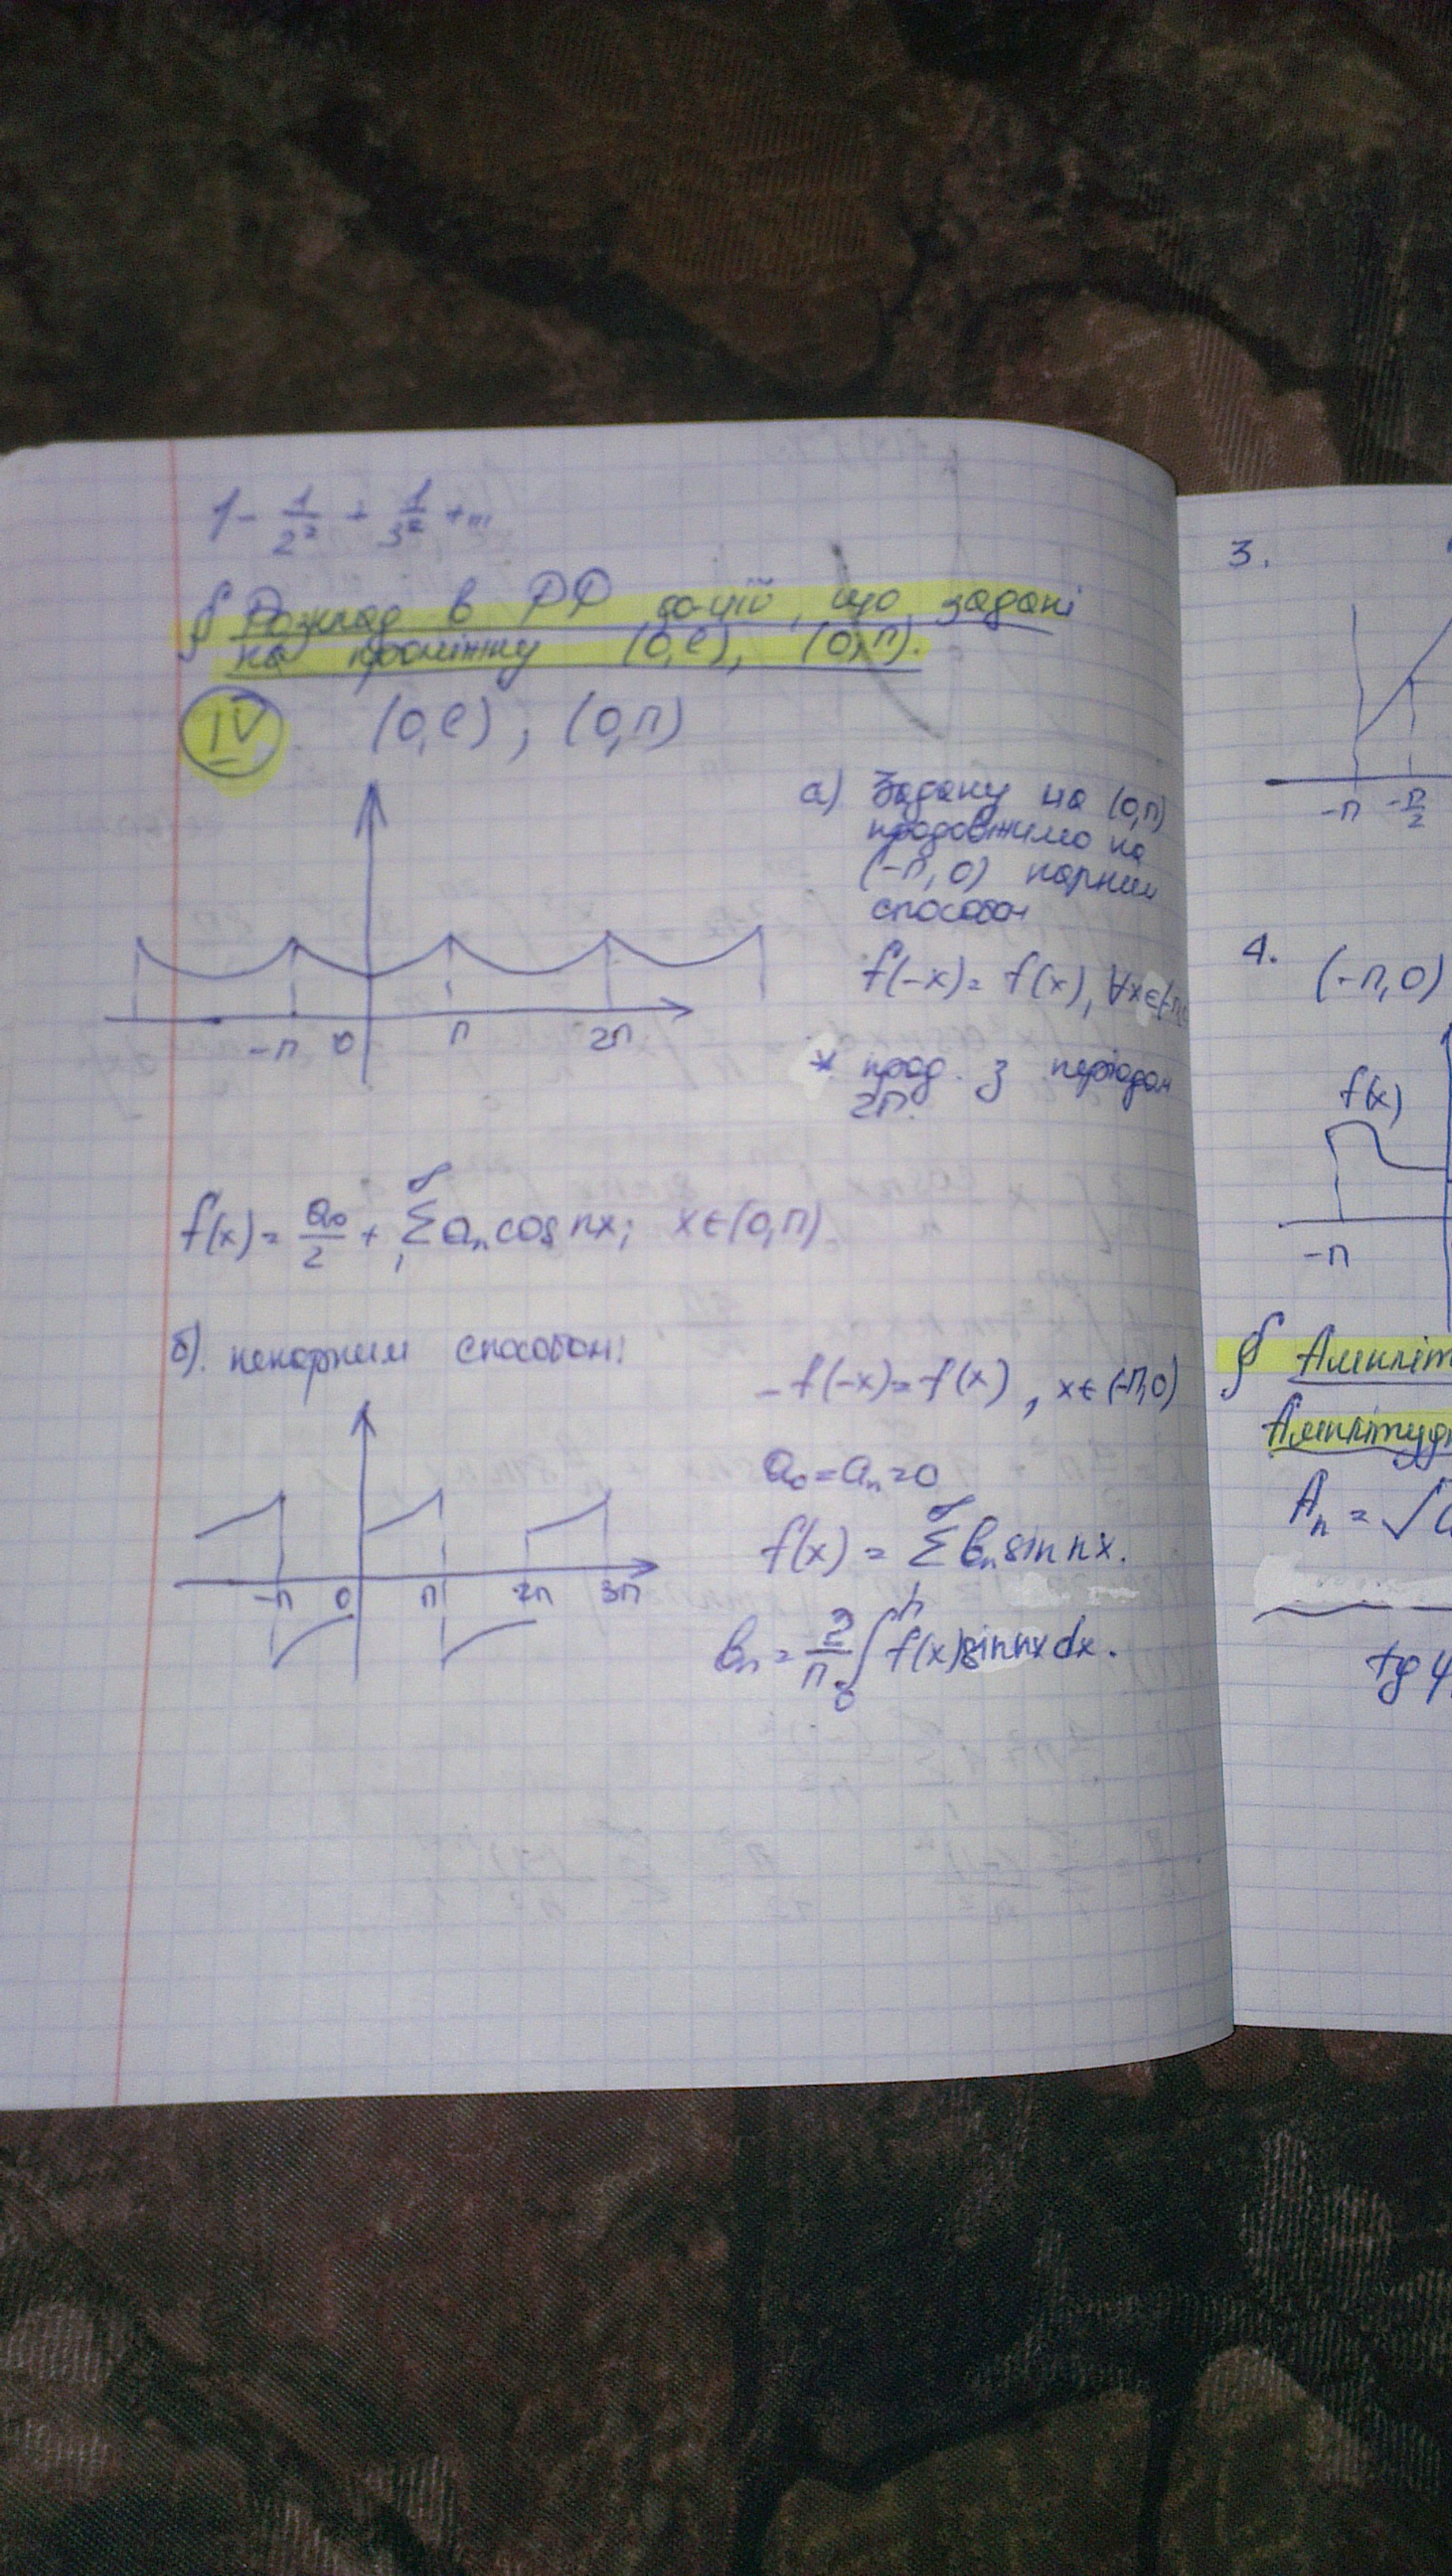 1 - 1/2² + 1/3² + ...
§ Розклад в РФ ф-цій, що задані
на проміжку (0,ℓ), (0,π).
IV (0,ℓ), (0,π)
а) Задану на (0,π)
продовжимо на
(-π,0) парним
способом
f(-x) = f(x), ∀x∈(-π,0
-π 0 π 2π
* прод. з періодом
2π.
f(x) = a₀/2 + ∑₁^∞ aₙ cos nx; x∈(0,π)
б). непарним способом:
-f(-x) = f(x), x∈(-π,0)
a₀ = aₙ = 0
f(x) = ∑₁^∞ bₙ sin nx.
-π 0 π 2π 3π
bₙ = 2/π ∫₀^π f(x) sin nx dx.
3.
-π -π/2
4. (-π,0)
f(x)
-π
§ Ампліт
Амплітудн
Aₙ = √a
tg φ